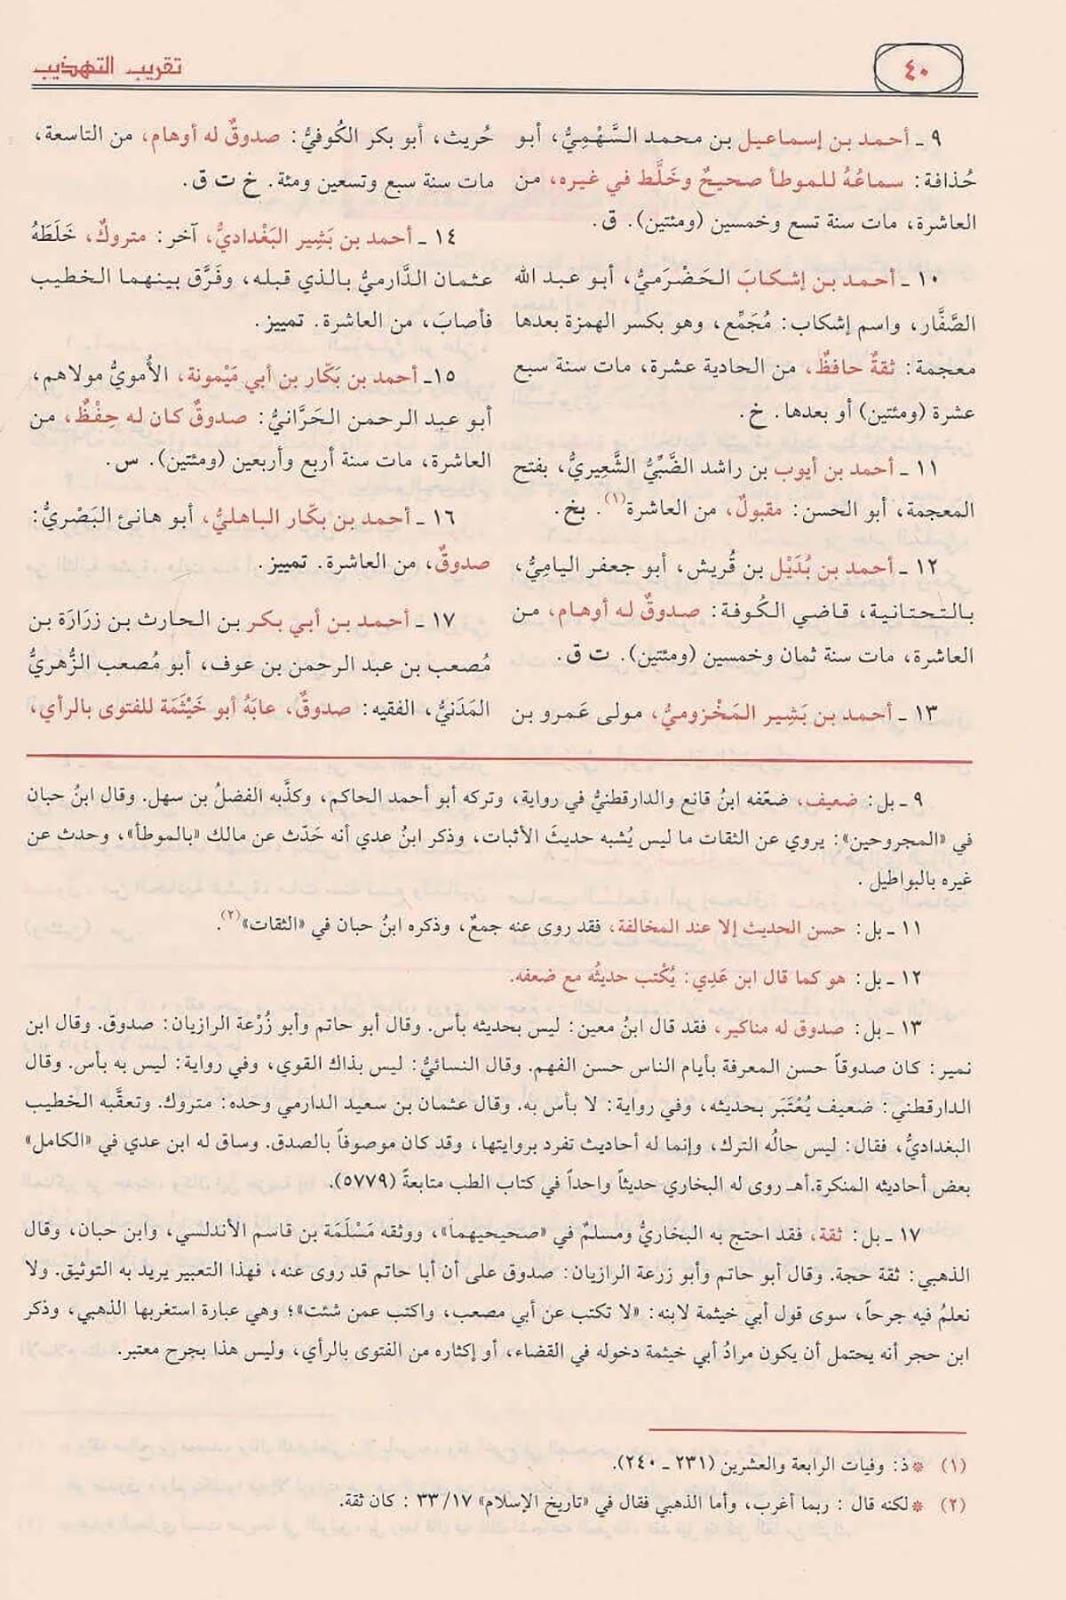 ٤٠
تقريب التهذيب
٩ ـ أحمد بن إسماعيل بن محمد السَّهْمِيُّ، أبو
حُذافة: سماعُهُ للموطأ صحيحٌ وخَلَّط في غيره، من
العاشرة، مات سنة تسع وخمسين (ومئتين). ق.
١٠ ـ أحمد بن إشكابَ الحَضْرَميُّ، أبو عبد الله
الصَّفَّار، واسم إشكاب: مُجَمِّع، وهو بكسر الهمزة بعدها
معجمة: ثقةٌ حافظٌ، من الحادية عشرة، مات سنة سبع
عشرة (ومئتين) أو بعدها. خ.
١١ ـ أحمد بن أيوب بن راشد الضَّبِّيُّ الشَّعِيريُّ، بفتح
المعجمة، أبو الحسن: مقبولٌ، من العاشرة(١). بخ.
١٢ ـ أحمد بن بُدَيْل بن قُريش، أبو جعفر اليامِيُّ،
بالتحتانية، قاضي الكُوفة: صدوقٌ له أوهام، من
العاشرة، مات سنة ثمان وخمسين (ومئتين). ت ق.
١٣ ـ أحمد بن بَشِير المَخْزوميُّ، مولى عَمرو بن
حُريث، أبو بكر الكُوفيُّ: صدوقٌ له أوهام، من التاسعة،
مات سنة سبع وتسعين ومئة. خ ت ق.
١٤ ـ أحمد بن بَشِير البَغْداديُّ، آخر: متروكٌ، خَلَطَهُ
عثمان الدَّارميُّ بالذي قبله، وفَرَّق بينهما الخطيب
فأصابَ، من العاشرة. تمييز.
١٥ـ أحمد بن بَكّار بن أبي مَيْمونة، الأُمويُّ مولاهم،
أبو عبد الرحمن الحَرَّانيُّ: صدوقٌ كان له حِفْظٌ، من
العاشرة، مات سنة أربع وأربعين (ومئتين). س.
١٦ ـ أحمد بن بكّار الباهليُّ، أبو هانئ البَصْريُّ:
صدوقٌ، من العاشرة. تمييز.
١٧ ـ أحمد بن أبي بكر بن الحارث بن زرَارَة بن
مُصعب بن عبد الرحمن بن عوف، أبو مُصعب الزُّهريُّ
المَدَنيُّ، الفقيه: صدوقٌ، عابَهُ أبو خَيْثَمَة للفتوى بالرأي،
٩ ـ بل: ضعيف، ضعّفه ابنُ قانع والدارقطنيُّ في رواية، وتركه أبو أحمد الحاكم، وكذَّبه الفضلُ بن سهل. وقال ابنُ حبان
في «المجروحين»: يروي عن الثقات ما ليس يُشبه حديثَ الأثبات، وذكر ابنُ عدي أنه حَدّث عن مالك «بالموطأ»، وحدث عن
غيره بالبواطيل.
١١ ـ بل: حسن الحديث إلا عند المخالفة، فقد روى عنه جمعٌ، وذكره ابنُ حبان في «الثقات»(٢).
١٢ ـ بل: هو كما قال ابن عَدِي: يُكْتب حديثُه مع ضعفه.
١٣ ـ بل: صدوق له مناكير، فقد قال ابنُ معين: ليس بحديثه بأس. وقال أبو حاتم وأبو زُرْعة الرازيان: صدوق. وقال ابن
نمير: كان صدوقاً حسن المعرفة بأيام الناس حسن الفهم. وقال النسائيُّ: ليس بذاك القوي، وفي رواية: ليس به بأس. وقال
الدارقطني: ضعيف يُعْتَبَر بحديثه، وفي رواية: لا بأس به. وقال عثمان بن سعيد الدارمي وحده: متروك. وتعقَّبه الخطيب
البغداديُّ، فقال: ليس حالُه الترك، وإنما له أحاديث تفرد بروايتها، وقد كان موصوفاً بالصدق. وساق له ابن عدي في «الكامل»
بعض أحاديثه المنكرة.أهـ روى له البخاري حديثاً واحداً في كتاب الطب متابعةً (٥٧٧٩).
١٧ ـ بل: ثقة، فقد احتج به البخاريُّ ومسلمٌ في «صحيحيهما»، ووثقه مَسْلَمَة بن قاسم الأندلسي، وابن حبان، وقال
الذهبي: ثقة حجة. وقال أبو حاتم وأبو زرعة الرازيان: صدوق على أن أبا حاتم قد روى عنه، فهذا التعبير يريد به التوثيق. ولا
نعلمُ فيه جرحاً، سوى قول أبي خيثمة لابنه: «لا تكتب عن أبي مصعب، واكتب عمن شئت»؛ وهي عبارة استغربها الذهبي، وذكر
ابن حجر أنه يحتمل أن يكون مرادُ أبي خيثمة دخوله في القضاء، أو إكثاره من الفتوى بالرأي، وليس هذا بجرح معتبر.
(١) * ذ: وفيات الرابعة والعشرين (٢٣١ ـ ٢٤٠).
(٢) * لكنه قال: ربما أغرب، وأما الذهبي فقال في «تاريخ الإسلام» ٣٣/١٧ : كان ثقة.